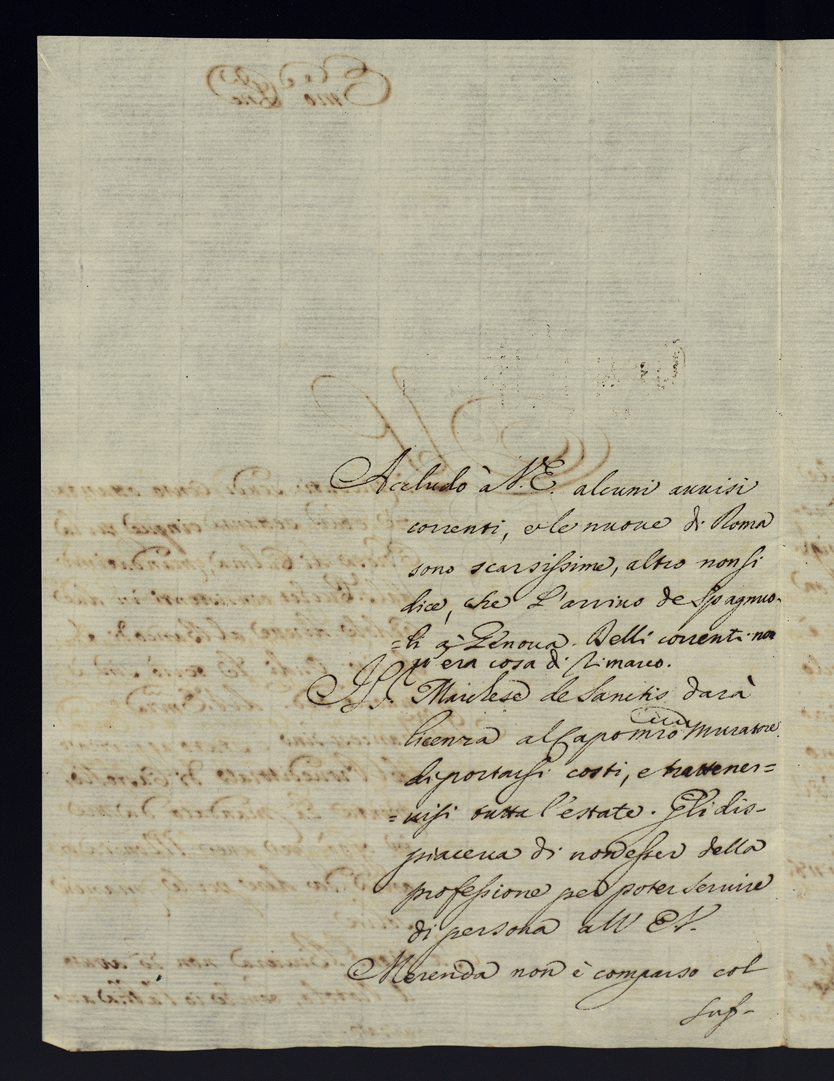 Accludo à V. E. alcuni avvisi
correnti, e le nuove di Roma
sono scarsissime, altro non si
dice, che L'arrivo de Spagnuo-
=li à Genova. Delli correnti non
vi era cosa di rimarco.
Il Sr. Marchese de Sanctis darà
licenza al Capo mro Muratore
di portarsi costì, e trattener=
=visi tutta l'estate. Gli dis-
piaceva di non esser della
professione per poter servire
di persona all' E. V.
Merenda non è comparso col
suf-